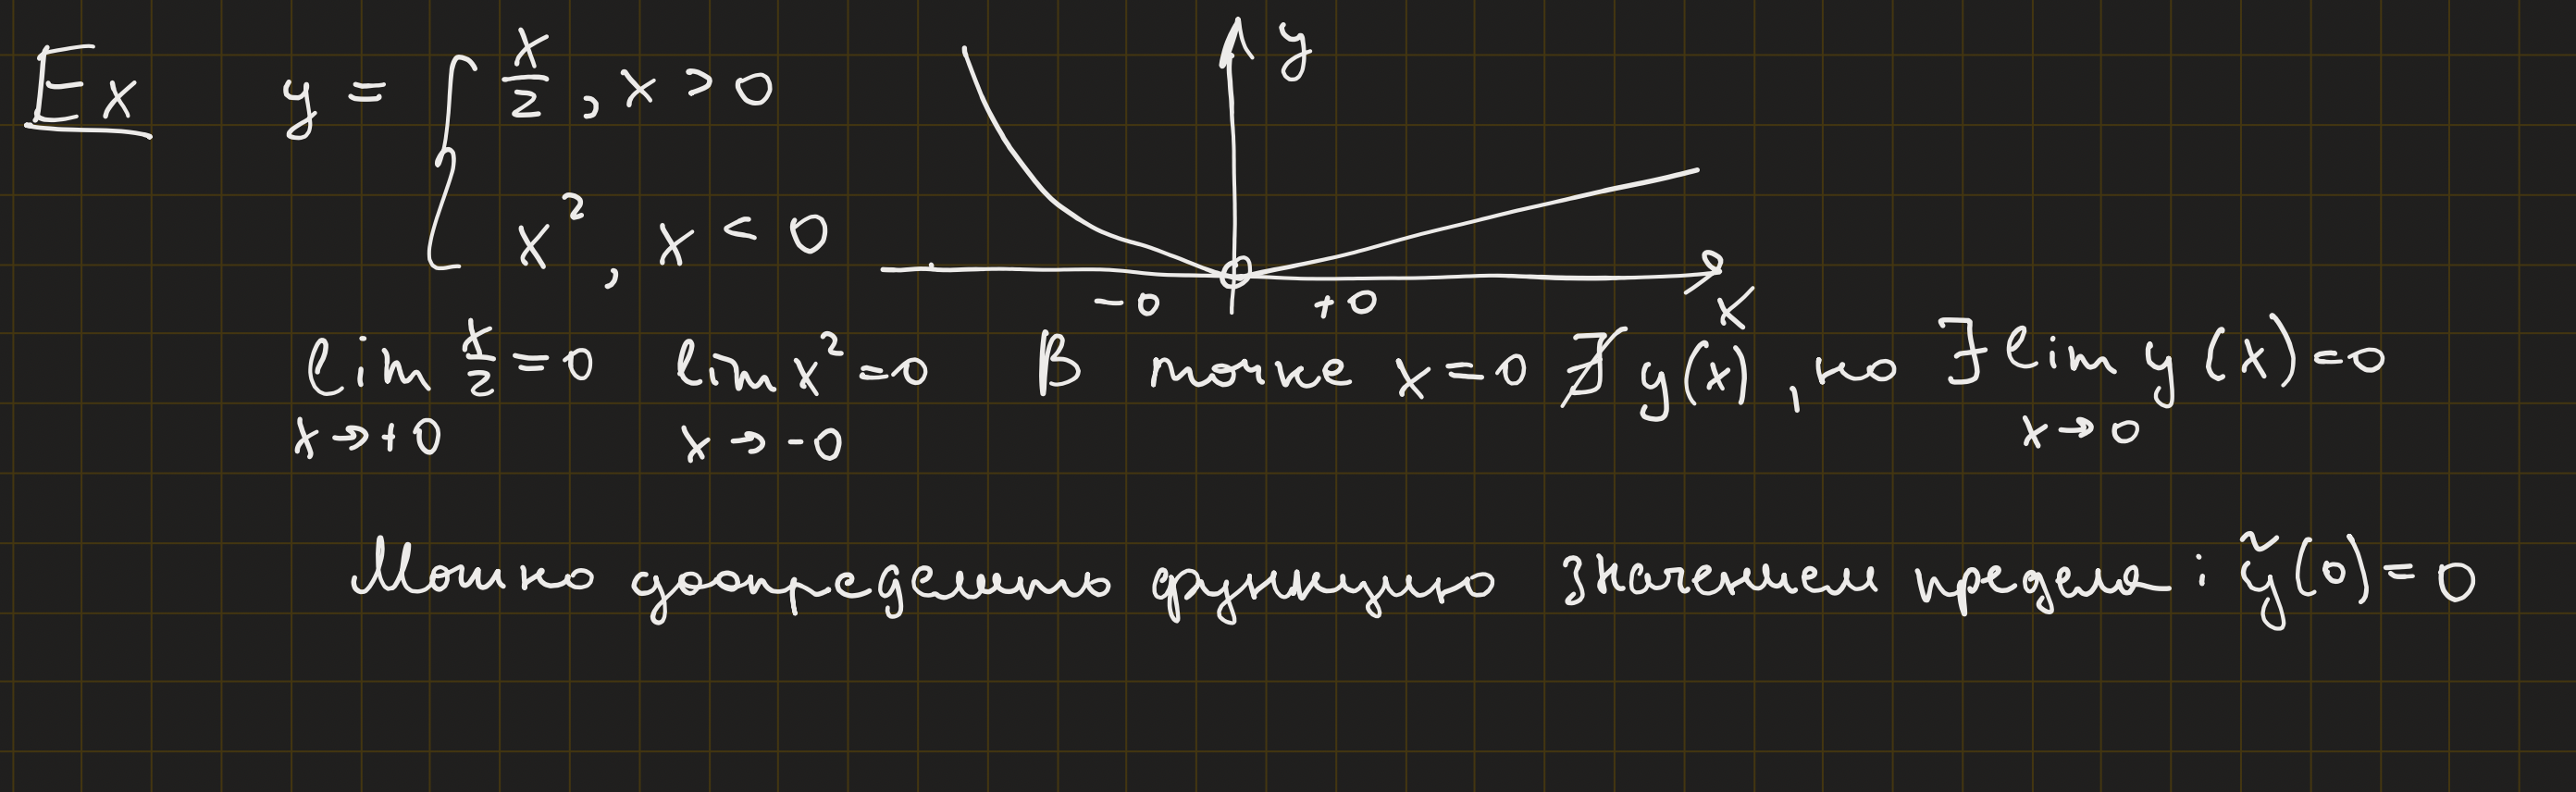 Ex y = { x/2, x > 0
x², x < 0
y
x
-0 +0
lim x/2 = 0 lim x² = 0 В точке x = 0 ∄ y(x), но ∃ lim y(x) = 0
x → +0 x → -0 x → 0
Можно доопределить функцию значением предела: ỹ(0) = 0